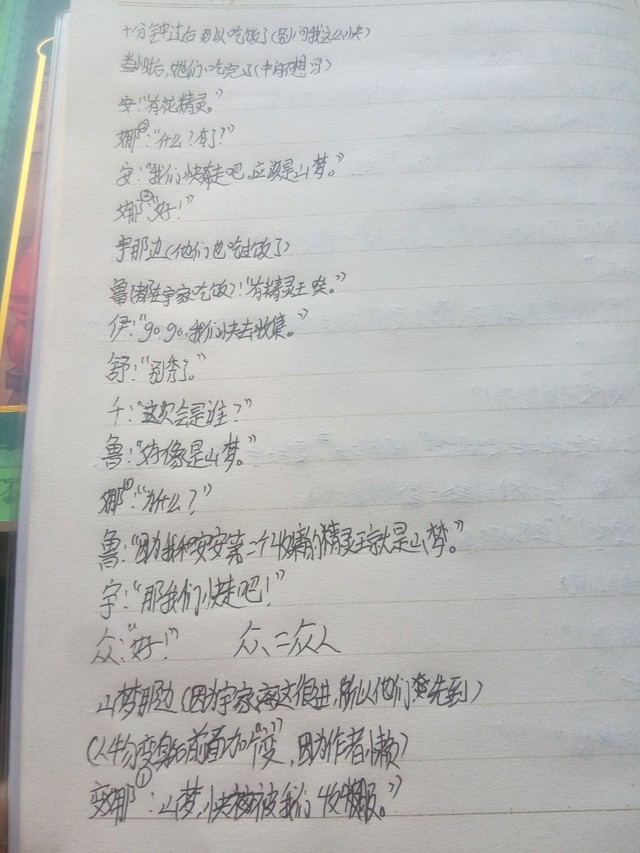 十分钟过后可以吃饭了(别问我这么快)
半小时后,她们吃完了(中间不想写)
安:“有花精灵。”
娜②:“什么?有了?”
安:“我们快走吧,应该是山梦。”
娜②:“好!”
宇那边(他们也吃过饭了)
鲁(都在宇家吃饭):“有精灵王唉。”
伊:“go go,我们快去收集。”
舒:“别秀了。”
千:“这次会是谁?”
鲁:“好像是山梦。”
娜①:“为什么?”
鲁:“因为我和安安第二个收集的精灵王就是山梦。”
宇:“那我们快走吧!”
众:“好!” 众、=众人
山梦那边(因为宇家离这很进,所以他们先到)
(人物变身后前面加个“变”,因为作者懒)
变娜①:“山梦,快被我们收服。”